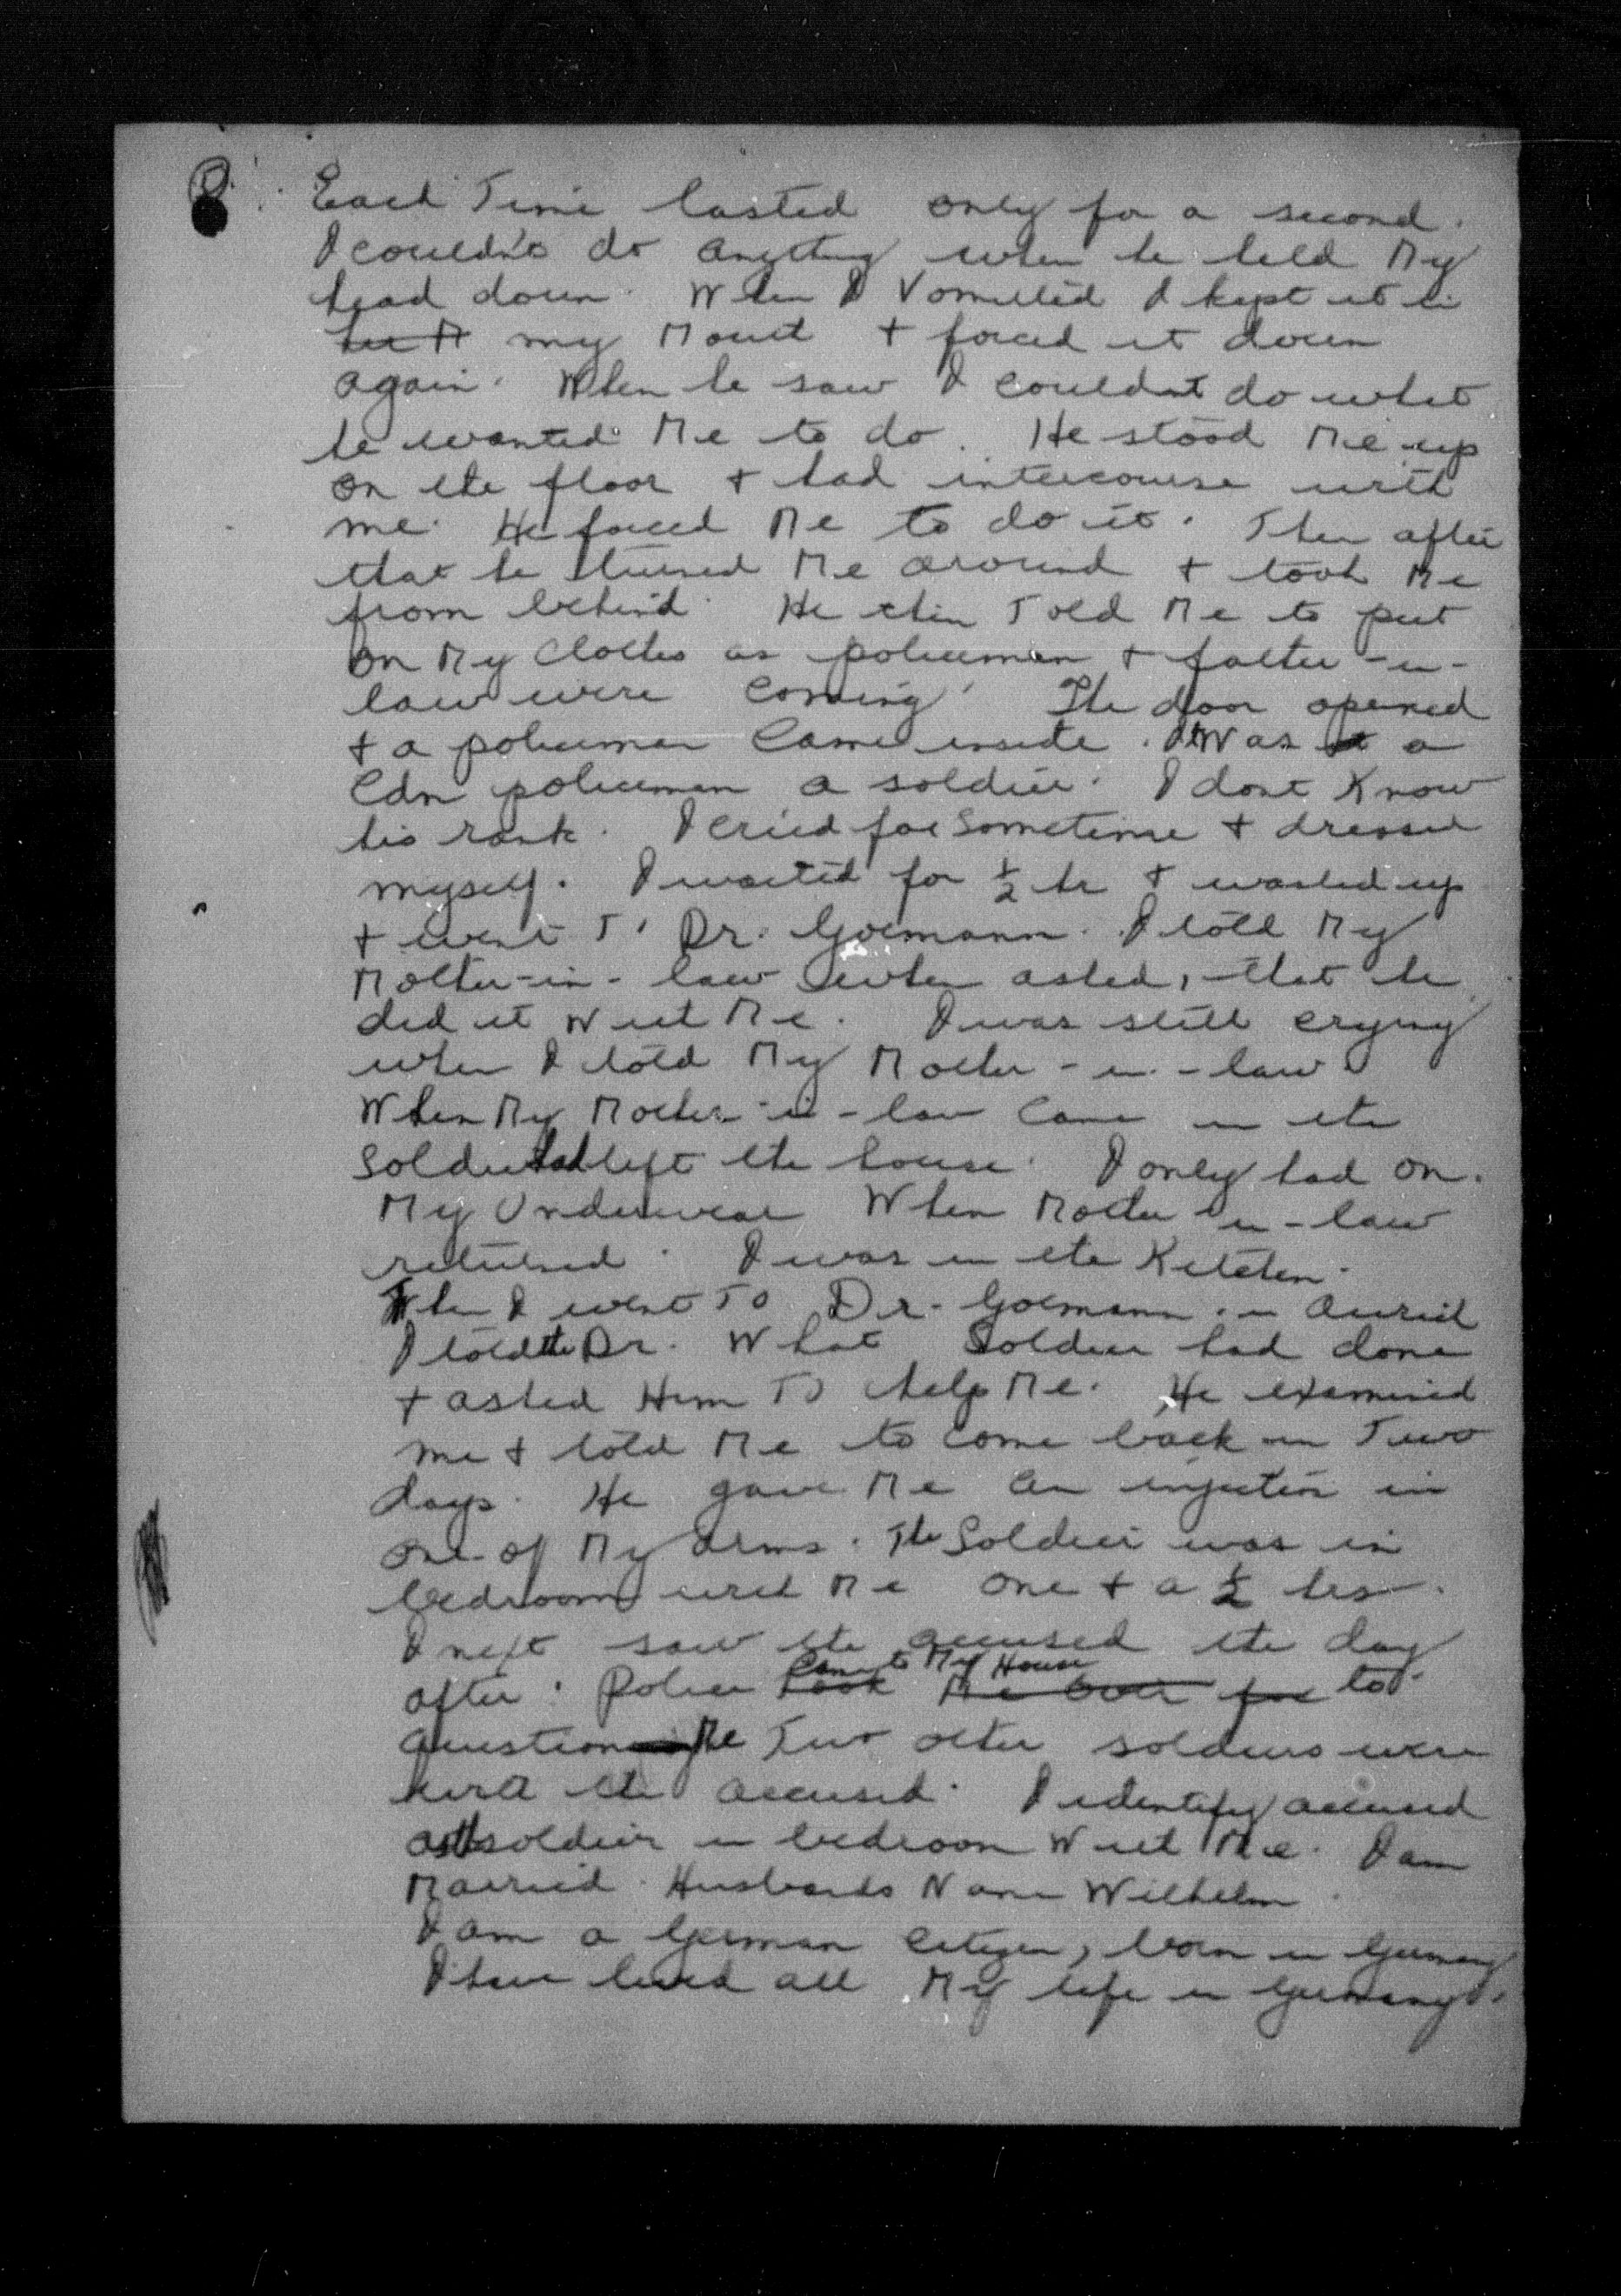 8.
Each Time lasted only for a second.
I couldn't do anything when he held My
head down. When I Vomitted I kept it in
her M my Mouth + forced it down
again. When he saw I couldnt do what
he wanted Me to do. He stood Me up
on the floor + had intercourse with
me. He forced Me to do it. Then after
that he turned Me around + took Me
from behind. He then Told Me to put
on My Clothes as policeman + father-in-
law were Coming. The door opened
+ a policeman Came inside. It Was a
Cdn policeman a soldier. I dont Know
his rank. I cried for sometime + dressed
myself. I waited for ½ hr + washed up
+ went To Dr. Goemann. I told My
Mother-in-law when asked, that he
did it With Me. I was still crying
when I told My Mother-in-law.
When My Mother-in-law Came in the
Soldier had left the house. I only had on
My Underwear When Mother in-law
returned. I was in the Kitchen.
When I went To Dr. Goemann in Aurich
I told the Dr. What Soldier had done
+ asked Him To help Me. He examined
me + told Me to come back in Two
days. He gave Me an injection in
one of My arms. The Soldier was in
bedroom with Me one + a ½ hrs.
I next saw the accused the day
Came to My House
after. Police took Me over for to
question Me Two other soldiers were
with the accused. I identify accused
as the soldier in bedroom With Me. I am
Married. Husbands Name Wilhelm.
I am a German Citizen, born in Germany
I have lived all My life in Germany.